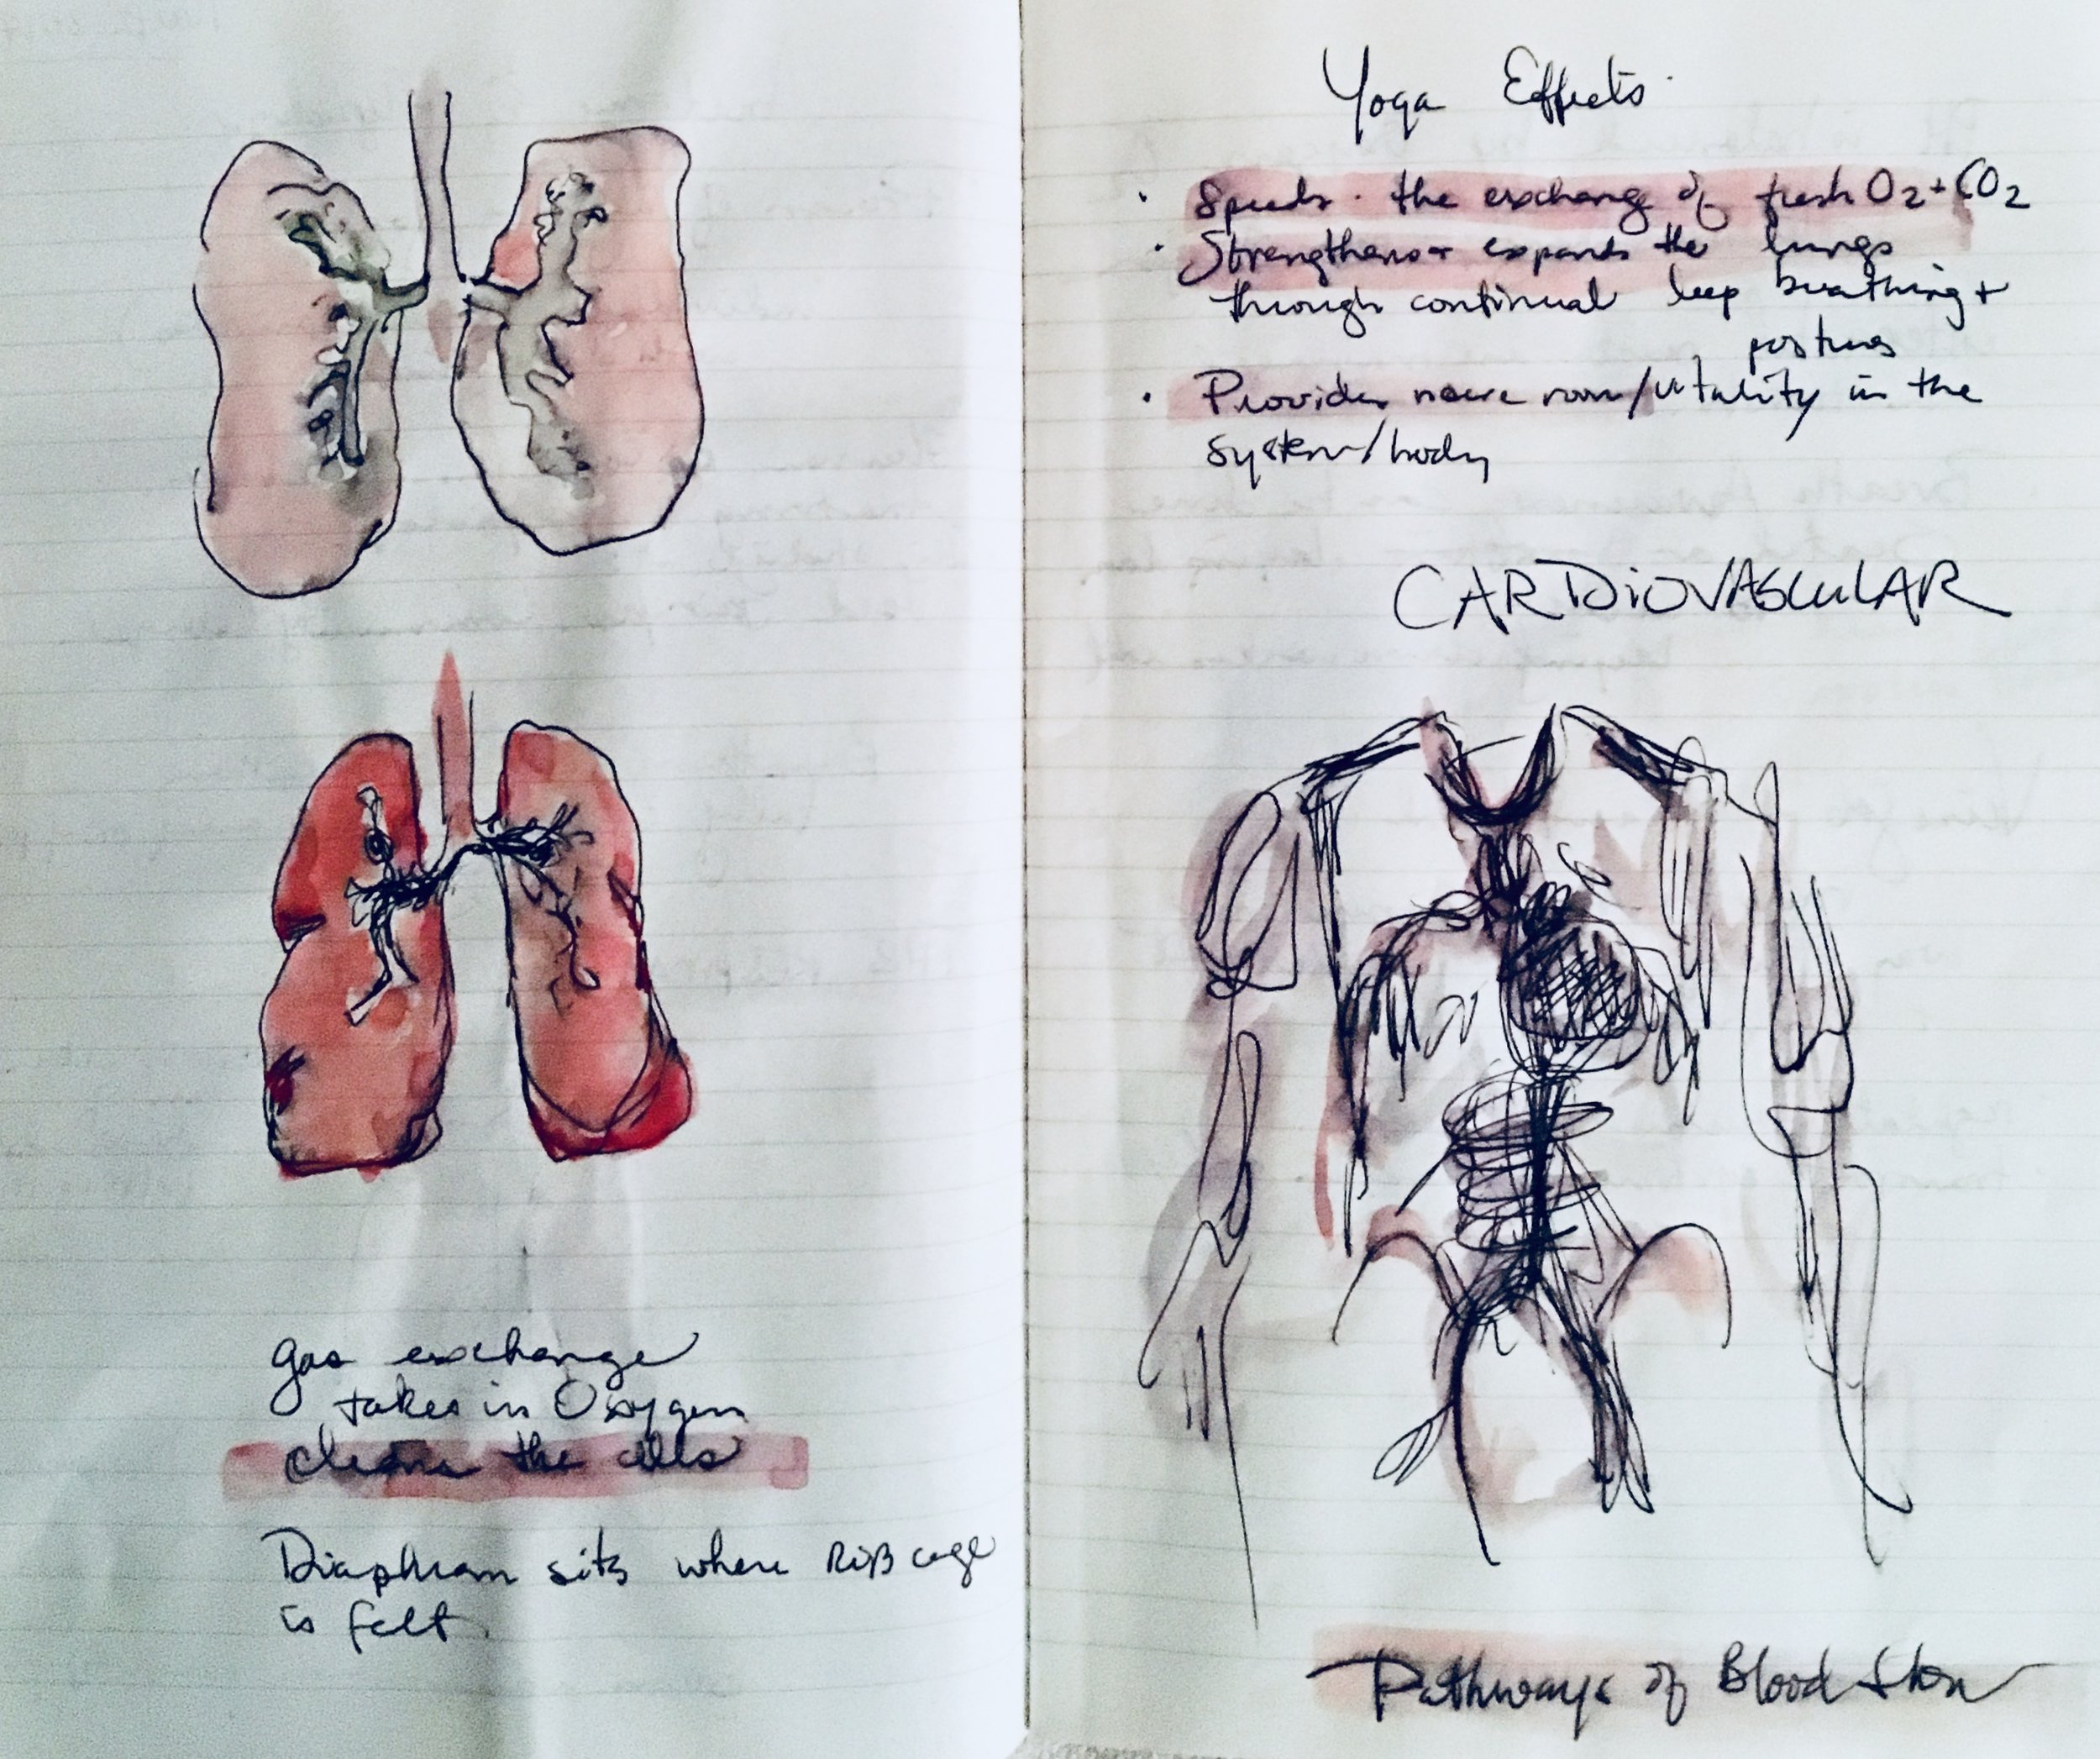 gas exchange
takes in Oxygen
cleans the cells
Diaphram sits where RiB cage
is felt
Yoga Effects
· Speeds the exchange of fresh O2 + CO2
· Strengthens + expands the lungs
through continual deep breathing +
postures
· Provides more room/vitality in the
system/body
CARDiOVASCULAR
Pathways of Blood flow